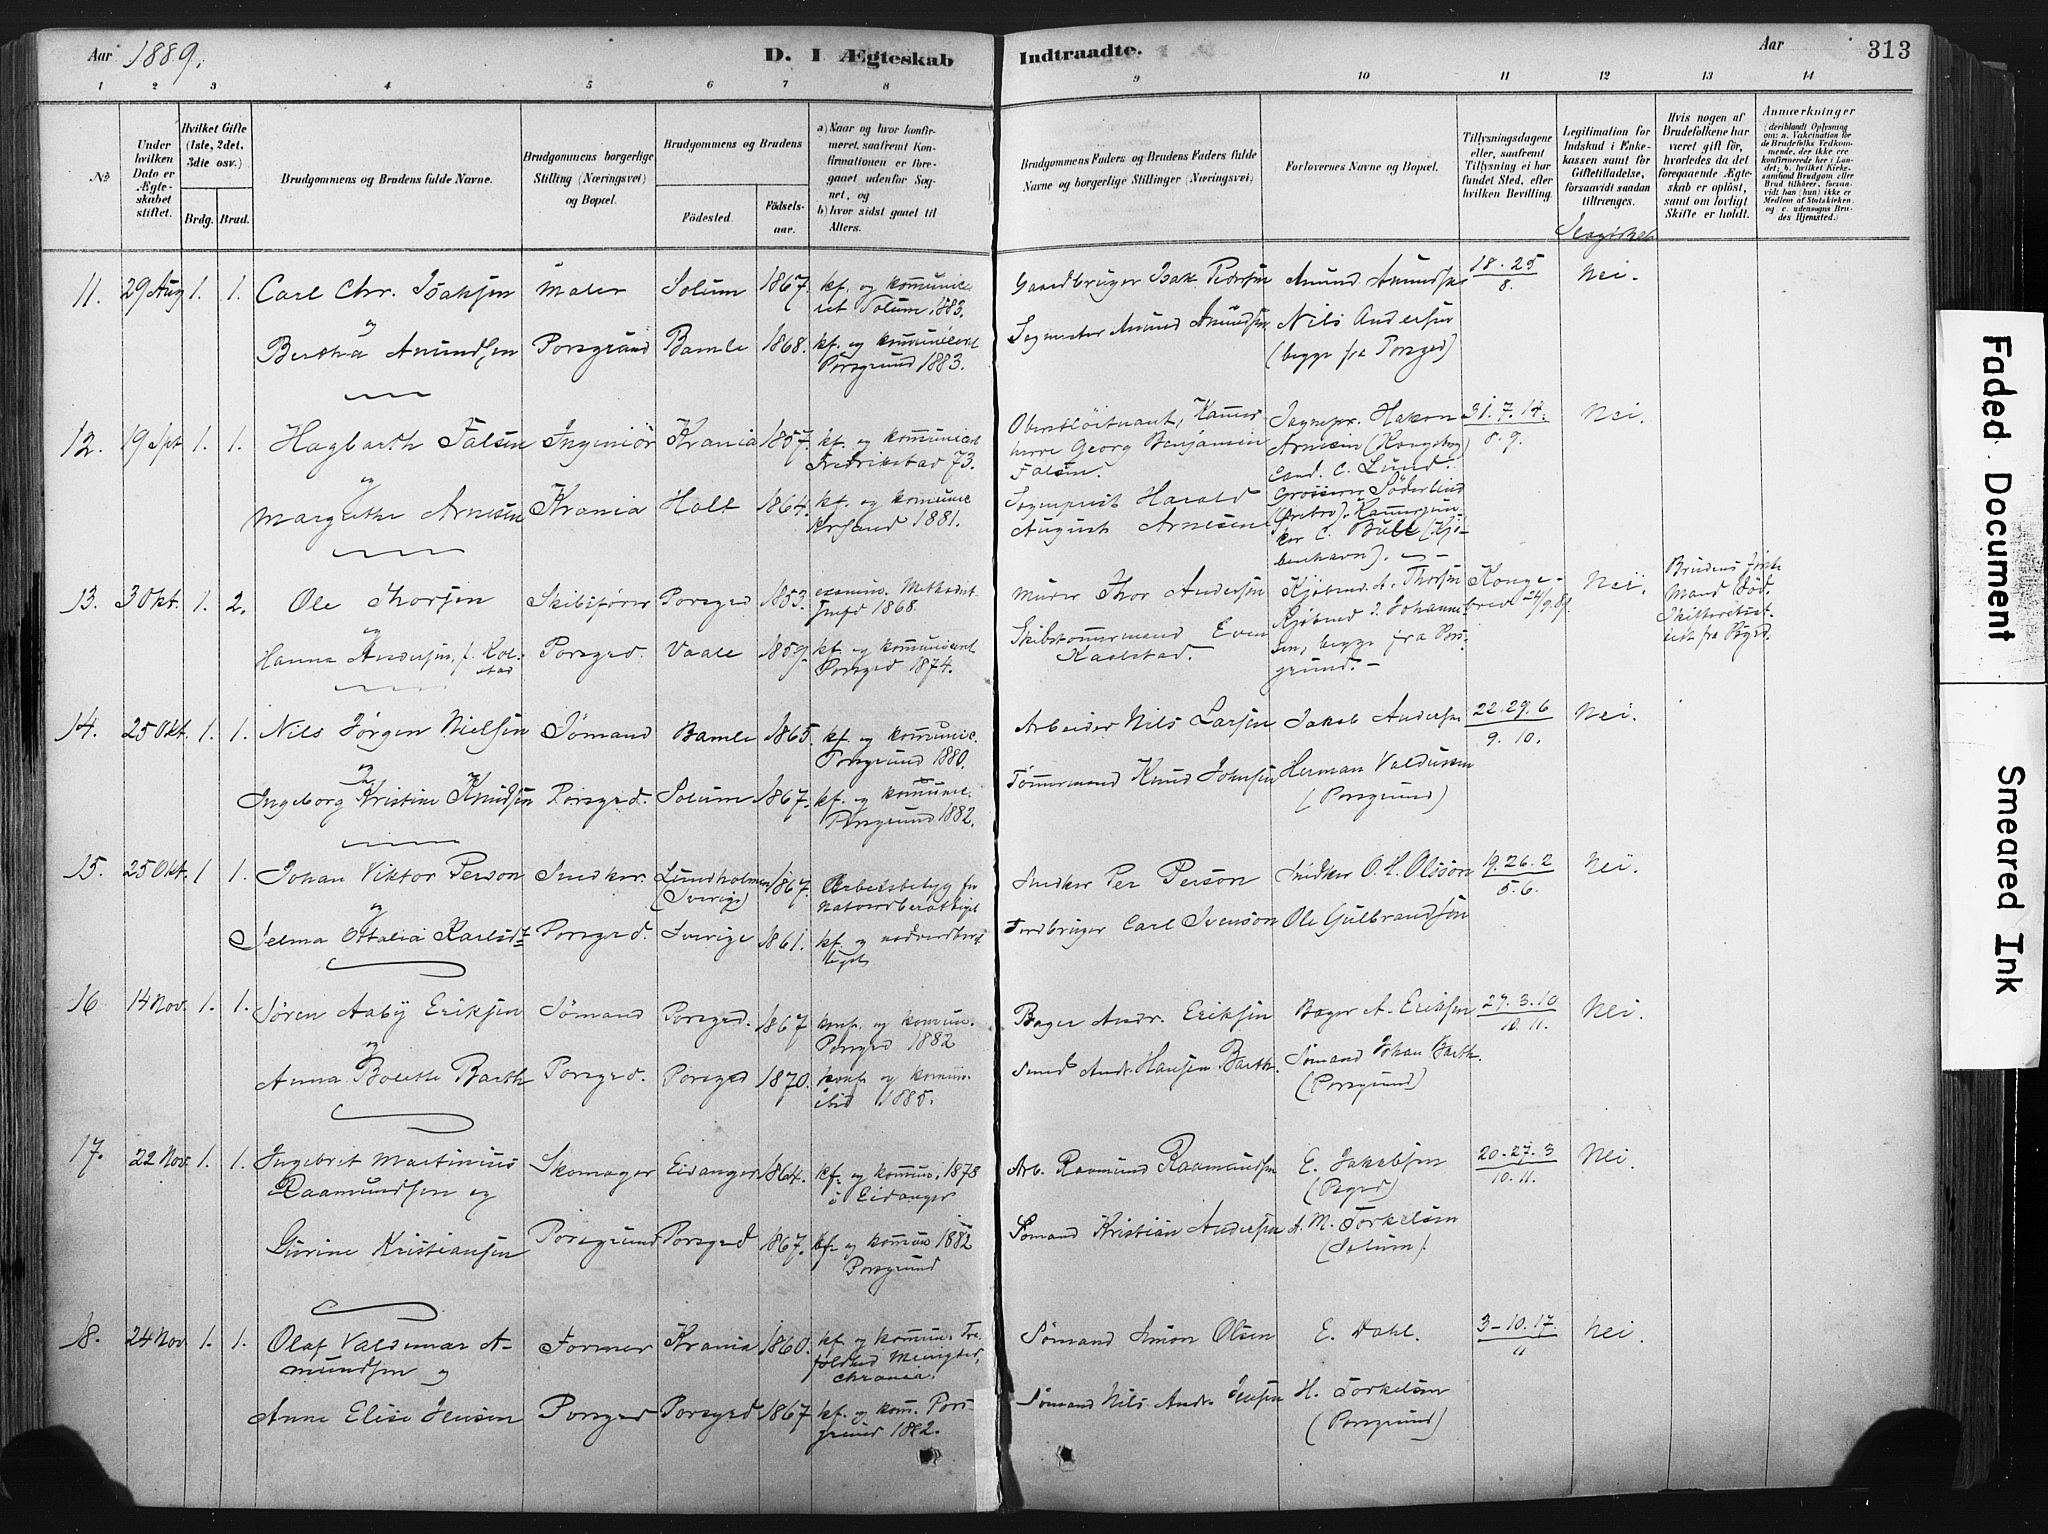 Aar 1889.
D. I Ægteskab Indtraadte.
Aar
313
1 2 3 4 5 6 7 8 9 10 11 12 13 14
No
Under hvilken Dato er Ægteskabet stiftet.
Hvilket Gifte (1ste, 2det, 3die osv.)
Brdg. Brud.
Brudgommens og Brudens fulde Navne.
Brudgommens borgerlige Stilling (Næringsvei) og Bopæl.
Brudgommens og Brudens
Fødested. Fødselsaar.
a) Naar og hvor konfirmeret, saafremt Konfirmationen er foregaaet udenfor Sognet, og
b) hvor sidst gaaet til Alters.
Brudgommens Faders og Brudens Faders fulde Navne og borgerlige Stillinger (Næringsvei)
Forlovernes Navne og Bopæl.
Tillysningsdagene eller, saafremt Tillysning ei har fundet Sted, efter hvilken Bevilling.
Legitimation for Indskud i Enkekassen samt for Giftetilladelse, forsaavidt saadan tiltrænges.
Hvis nogen af Brudefolkene har været gift før, hvorledes da det foregaaende Ægteskab er opløst, samt om lovligt Skifte er holdt.
Anmærkninger
(deriblandt Oplysning om: a. Vakcination for de Brudefolks Vedkommende, der ikke ere konfirmerede her i Landet; b. hvilket Kirkesamfund Brudgom eller Brud tilhører, forsaavidt han (hun) ikke er Medlem af Statskirken, og c. udensogns Brudes Hjemsted.)
11. 29 Aug 1. 1. Carl Chr. Isaksen Maler Solum 1867. kf. og kommunice
ret Solum 1883. Gaardbruger Isak Pedersen Amund Amundsen 18. 25 / 8. Nei.
og
Bertha Amundsen Porsgrund Bamle 1868. kf. og kommuniceret
Porsgrund 1883. Sagmester Amund Amundsen Nils Andersen
(begge fra Porsgrd)
12. 19 Spt 1. 1. Hagbarth Falsen Ingeniør Krania 1857. kf. og kommuniceret
Fredrikstad 73. Oberstløitnant, Kammerherre Georg Benjamin
Falsen. Hakon
Arnesen (Kongsberg)
Cand. C. Lund. 31. 7. 14. / 8. 9. Nei.
og
Margrethe Arnesen Krania Holt 1864. kf. og kommunic
Krsand 1881. Sogneprest Harald
August Arnesen Grosserer Söderlind
(Örebro), Kammerjunker C. Bull (Kjøbenhavn).
13. 3 Okt. 1. 2. Ole Thorsen Skibsfører Porsgrd 1853. examin. Methodist
1868 Murer Thor Andersen Kjøbmd. A. Thorsen Kongebrev 24/9.89 Nei. Brudens første
Mand død.
fra Pgrd.
og
Hanna Andersen, f. Kolstad Porsgrd. Vaale 1859. kf. og kommuniceret
Porsgrd 1874. Skibstømmermand Even
Kaalstad. Kjøbmd J. Johannesen, begge fra Porsgrund.
14. 25 Okt. 1. 1. Nils Jørgen Nielsen Sømand Bamle 1865. kf. og kommunic.
Porsgrund 1880. Arbeider Nils Larsen Jakob Andersen 22. 29. 6 / 9. 10. Nei.
og
Ingeborg Kristine Knudsen Porsgrd. Solum 1867. kf. og kommunic.
Porsgrund 1882. Tømmermand Knud Johnsen Herman
(Porsgrund)
15. 25 Okt. 1 1. Johan Viktor Person Snedker. Lundholmen
(Sverige) 1867. Arbetsbetyg fr
Natvardberättiget Snedker Per Person Snedker O. H. Olsson 19. 26. 2 / 5. 6. Nei.
og
Selma Ottalia Karlsdt Porsgrd. Sverige 1861. kf. og nadverdberet
tiget Jordbruger Carl Svenson Ole Gulbrandsøn
16 14 Nov. 1. 1. Søren Aaby Eriksen Sømand Porsgrd. 1867 konf. og kommun.
Porsgrd 1882 Bager Andr. Eriksen Bager A. Eriksen 27. 3. 10 / 10. 11. Nei.
og
Anna Bolette Barth Porsgrd. Porsgrd 1870. konf. og kommun.
ibid 1885. Smed Andr. Hansen Barth. Sømand Johan Barth.
(Porsgrund)
17. 22 Nov. 1. 1. Ingebret Martinius
Raamundsen og Skomager Eidanger 1864. kf. og kommun. 1878
i Eidanger Arb. Raamund Raamundsen E. Jakobsen
(Pgrd) 20. 27. 3 / 10. 11. Nei.
Gurine Kristiansen Porsgrund Porsgrd 1867. kf. og kommun 1882
Porsgrund Sømand Kristian Andersen A. M. Torkelsen
(Solum).
18. 24 Nov 1. 1. Olaf Valdemar Amundsen og Former Krania 1860. kf. og kommun. Trefoldhed Menighed,
Chrania. Sømand Simon Olsen E. Dahl. 3-10. 17. / 11 Nei.
Anne Elise Jensen Porsgrd Porsgrd 1867 kf. og kom. Porsgrund 1882. Sømand Nils Andr. Jensen H. Torkelsen
(Porsgrund)
Faded Document
Smeared Ink